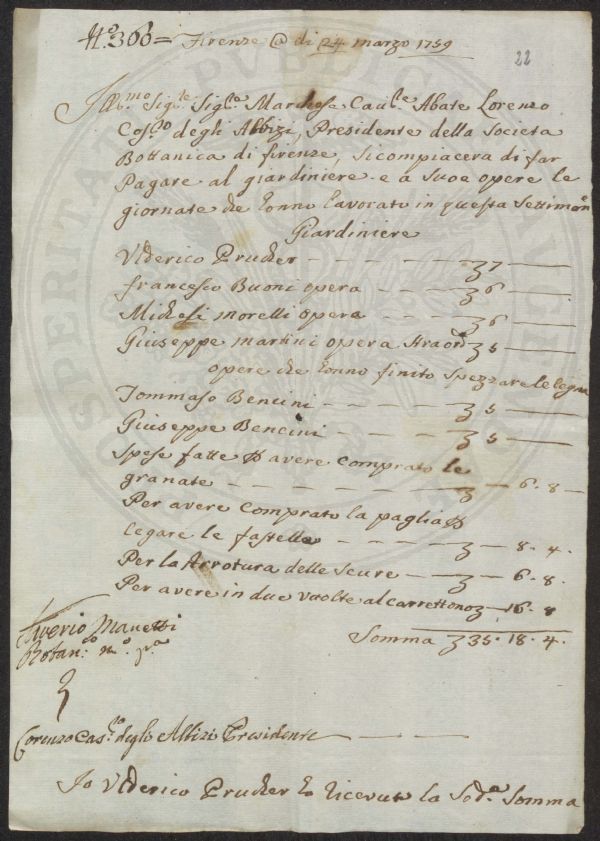 N.o 366 = Firenze @ di 24 marzo 1759
22
Ill.mo Sig.re Sig.re Marchese Caul.e Abate Lorenzo
Cos.o degli Albizi, Presidente della Societa
Bottanica di firenze, si compiacera di far
Pagare al giardiniere e a Suoe opere le
giornate che Eonno lavorato in questa Settiman.a
Giardiniere
Ulderico Prucker - - - - - - 37 —
francesco Buoni opera - - - - 36 —
Michesi morelli opera - - - - 36 —
Giuseppe martini opera Straord.a 35 —
opere che Eonno finito Spezzare le legna
Tommaso Bencini - - - - - 35 —
Giuseppe Bencini - - - - - 35 —
Spese fatte p avere Comprato le
granate - - - - - - - 3 — 6. 8 —
Per avere Comprato la paglia p
legare le fastella - - - - 3 — 8. 4.
Per la Arrotura delle Scure — 3 — 6. 8.
Per avere in due vuolte al carrettono 3 — 16. 8
Somma 3 35. 18. 4.
Saverio Manetti
Botan.co m.o p.a
Lorenzo Cas.o degli Albizi Presidente - - -
Io Ulderico Prucker Eo Ricevuto la Sod.a Somma